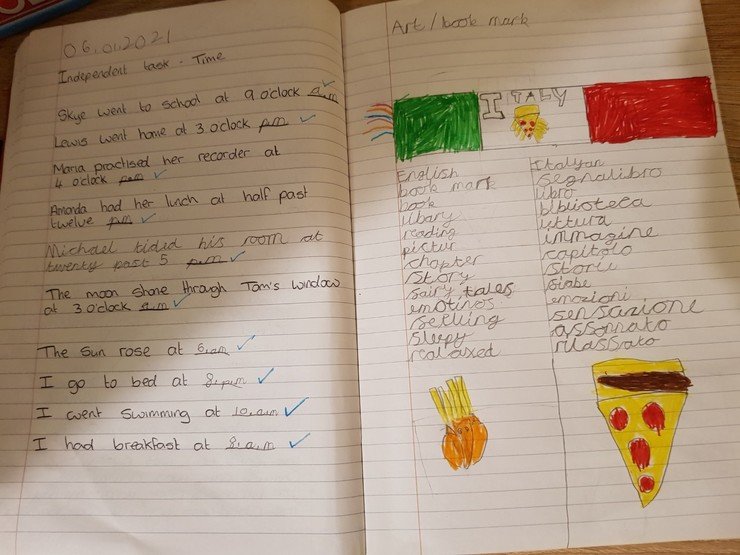 06.01.2021
Independent task . Time
Skye went to school at 9 o'clock a.m
Lewis went home at 3 o'clock p.m
Maria practised her recorder at
4 o'clock p.m
Amanda had her lunch at half past
twelve p.m
Michael tidid his room at
twenty past 5 p.m
The moon shone through Tom's window
at 3 o'clock a.m
The sun rose at 6.am
I go to bed at 8.p.m
I went swimming at 10.a.m
I had breakfast at 8.a.m
Art / book mark
ITALY
English
book mark
book
libary
reading
pictur
chapter
story
fairy tales
emotinos
setling
sleepy
realaxed
Italyan
segnalibro
libro
biblioteca
littura
immagine
capitolo
storie
fiabe
emozioni
sensazione
assonnato
rilassato